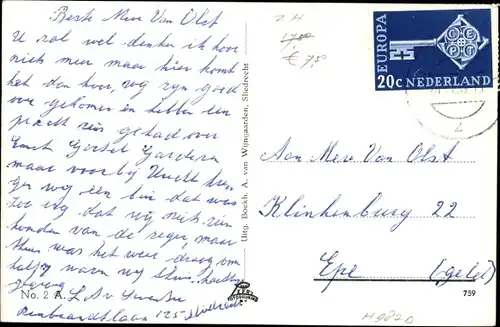 Beste Mevr Van Olst
U zal wel denken ik hoor
niets meer maar hier komt
het dan hoor, wij zijn goed
over gekomen en hebben een
pracht reis gehad over
Garderen
maar voorbij Utrecht
wij een bui dat was
zoo erg dat wij niets zien
konden van de regen, maar
thuis was het weer droog om
half 7 waren wij thuis hartelijk
No. 2 A.
Rembrandtlaan 125 Sliedrecht
Uitg. Boekh. A. van Wijngaarden, Sliedrecht
Z H
€ 7,50
EUROPA
CEPT
20c NEDERLAND
Aan Mevr. Van Olst
Klinkenburg 22
Epe (geld)
759